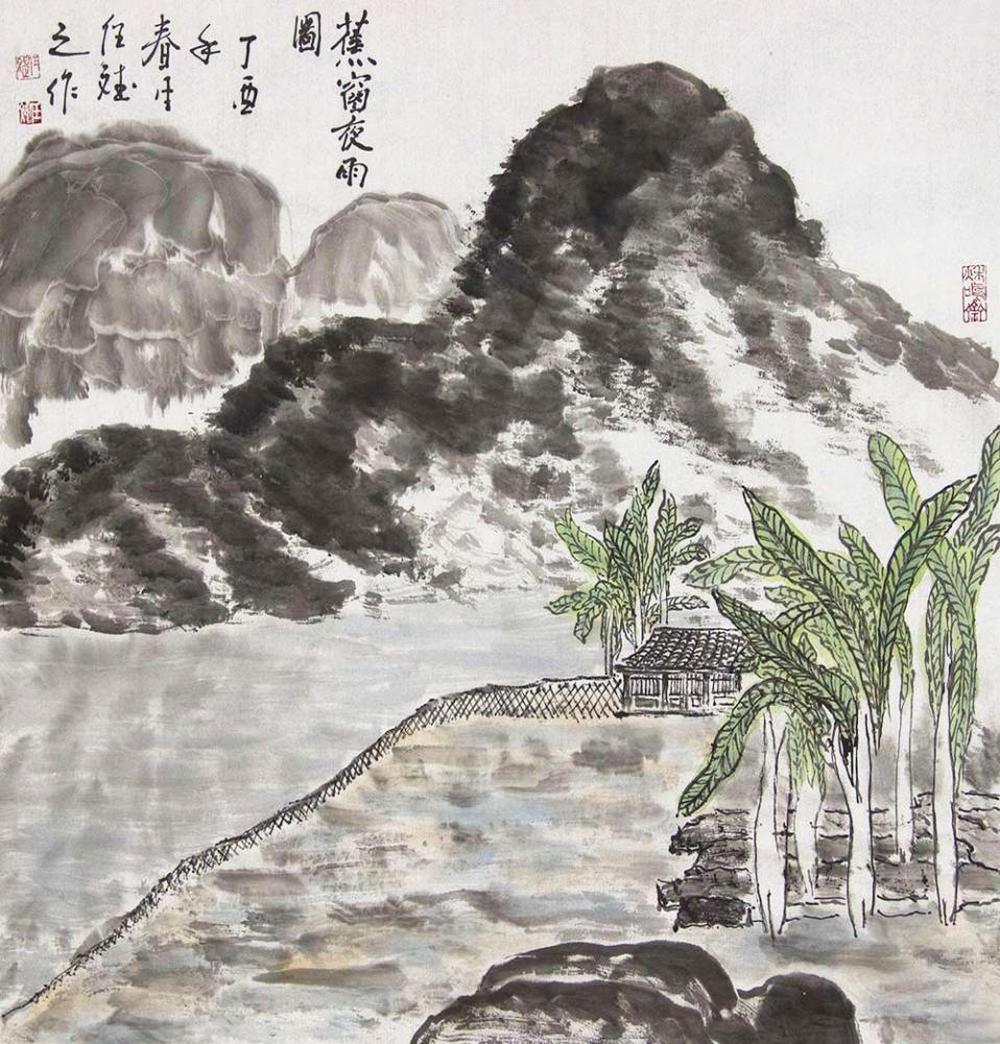 蕉窗夜雨
圖
丁酉
年
春月
任斌
之作